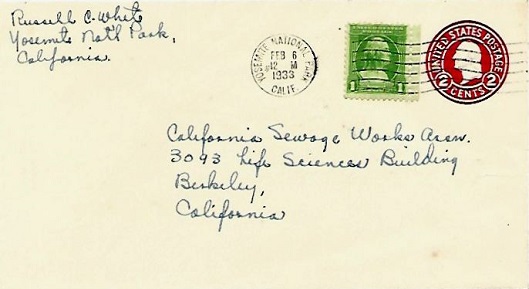 Russell C. White
Yosemite Nat'l Park,
California.
YOSEMITE NATIONAL PARK
FEB 6
12 M
1933
CALIF.
1 1
UNITED STATES POSTAGE
2 CENTS 2
California Sewage Works Assn.
3093 Life Sciences Building
Berkeley,
California